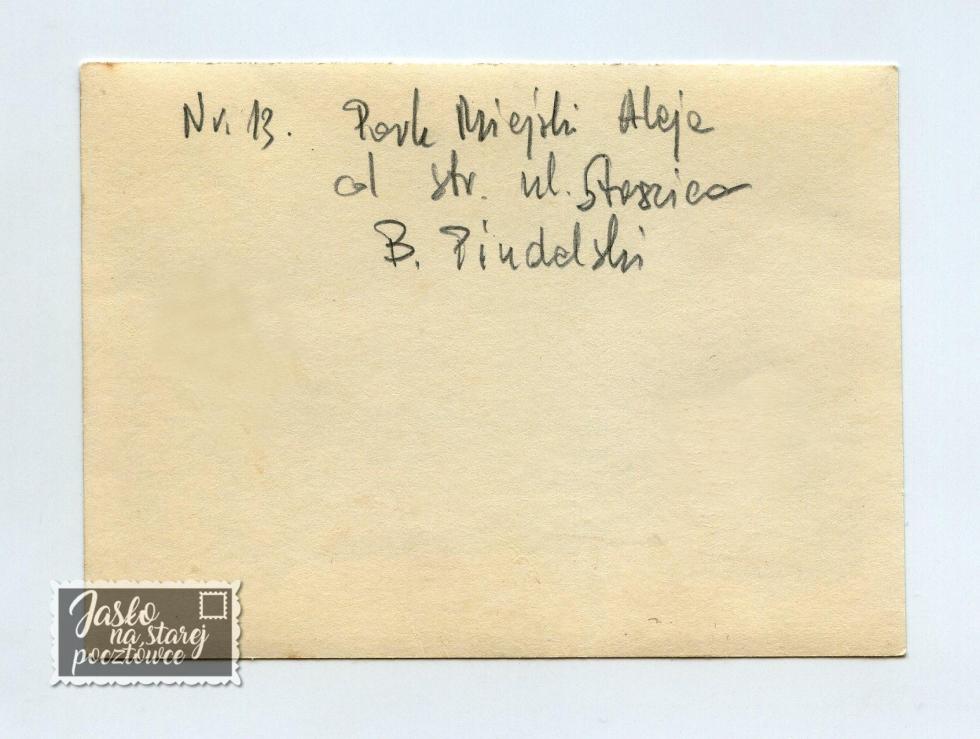 Nr. 13. Park Miejski Aleja
od str. ul. Staszica
B. Pindelski
Jasło
na starej
pocztówce